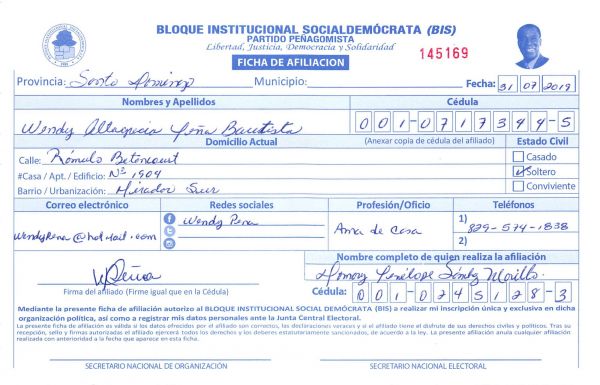 BLOQUE INSTITUCIONAL SOCIALDEMÓCRATA (BIS)
PARTIDO PEÑAGOMISTA
Libertad, Justicia, Democracia y Solidaridad
FICHA DE AFILIACION
145169
Provincia: Santo Domingo Municipio: Fecha: 31 07 2019
Nombres y Apellidos Cédula
Wendy Altagracia Peña Bautista 001-0717344-5
Domicilio Actual (Anexar copia de cédula del afiliado) Estado Civil
Calle: Rómulo Betancourt Casado
#Casa / Apt. / Edificio: Nº 1904 Soltero
Barrio / Urbanización: Mirador Sur Conviviente
Correo electrónico Redes sociales Profesión/Oficio Teléfonos
Wendy Pena 1) 829-574-1838
wendypena@hotmail.com Ama de Casa 2)
Nombre completo de quien realiza la afiliación
WPeña Penélope Morillo
Firma del afiliado (Firme igual que en la Cédula) Cédula: 001-0245128-3
Mediante la presente ficha de afiliación autorizo al BLOQUE INSTITUCIONAL SOCIAL DEMÓCRATA (BIS) a realizar mi inscripción única y exclusiva en dicha
organización política, así como a registrar mis datos personales ante la Junta Central Electoral.
La presente ficha de afiliación es válida si los datos ofrecidos por el afiliado son correctos, las declaraciones veraces y si el afiliado tiene el disfrute de sus derechos civiles y políticos. Tras su
recepción, sello y firmas autorizadas el afiliado ejercerá todos los derechos y los deberes estatutariamente sancionados, de acuerdo a la ley. La presente afiliación anula cualquier afiliación
realizada con anterioridad a la fecha que aparece en esta ficha.
SECRETARIO NACIONAL DE ORGANIZACIÓN SECRETARIO NACIONAL ELECTORAL